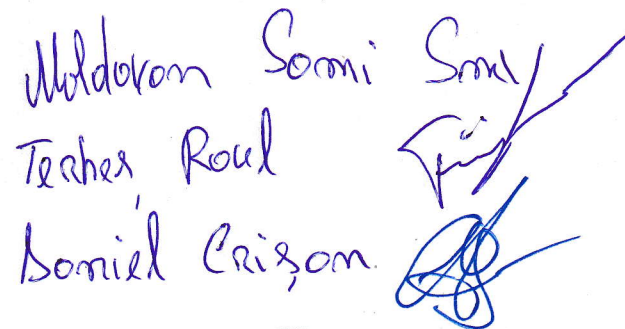 Moldovan Sami
Terheș Raul
Daniel Crișan